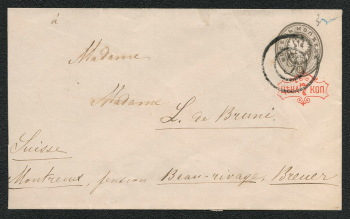 à
Madame
Madame
L. de Bruni
Suisse
Montreux, pension Beau-rivage, Breuer
ЦѢНА 7 КОП.